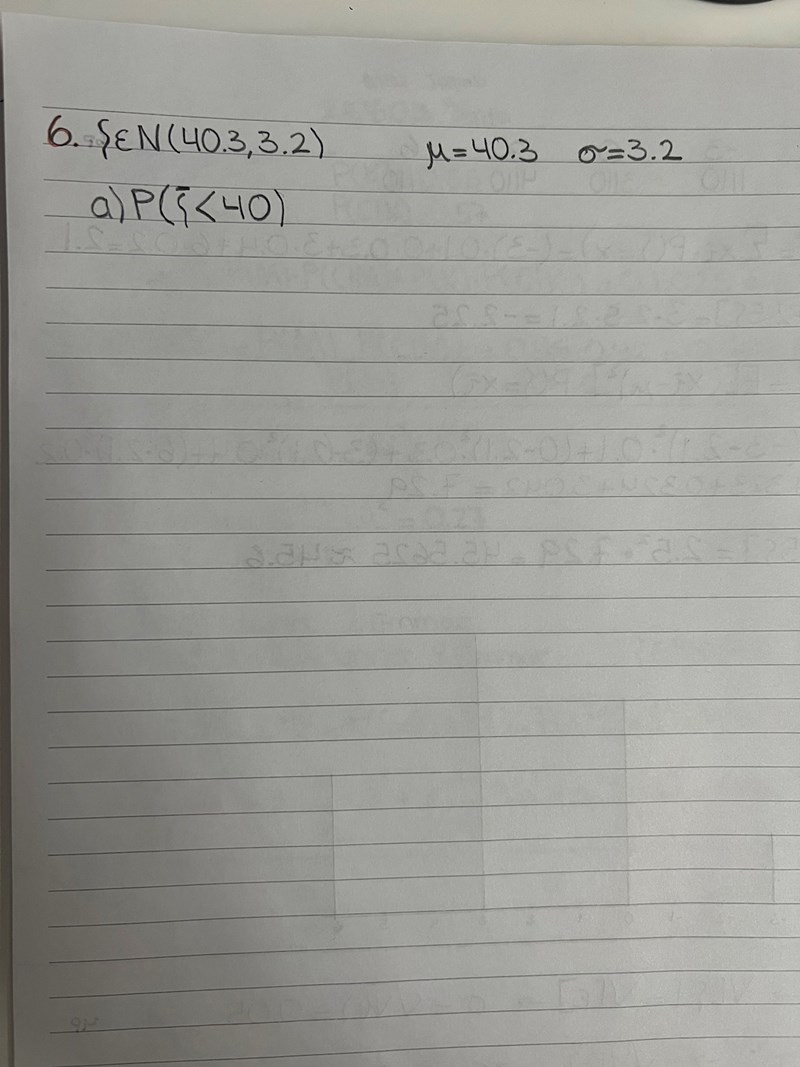 6. ξεN(40.3,3.2) μ=40.3 σ=3.2
a) P(ξ̄<40)